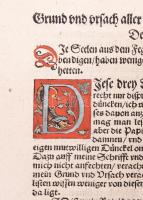 Grund vnd vrsach aller
De
DJe Seelen aus dem Feg
den digen/haben wenige
hetten.
DJese drey
recht mir disp
düncken/ich m
ses dauon anz
mag man lei
aber die Pap
damnen/ vnd
eigen mutwilligen Dünckel on
Dazu auff meine Schrifft vnd
mich nicht anfechten/ verach
mein Grund vnd Vrsach veran
listen wissen weniger von diesen
da ligt.